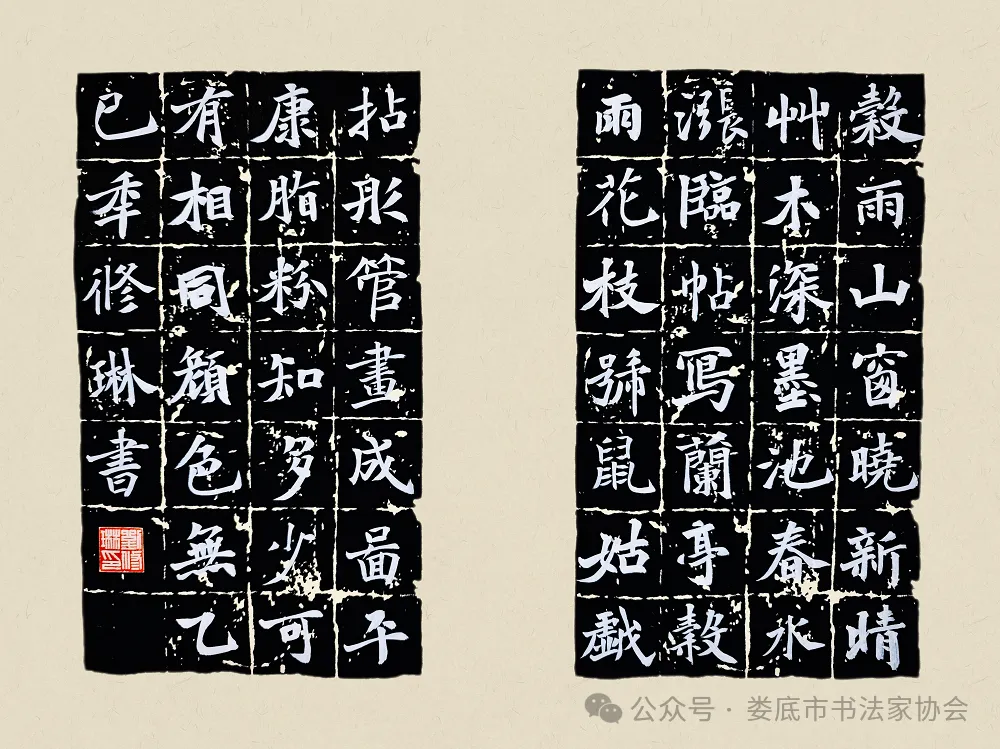 穀雨山窗曉新晴
艸木深墨池春水
漲臨帖寫蘭亭穀
雨花枝號鼠姑戲
拈彤管畫成啚平
康脂粉知多少可
有相同顔色無乙
巳秊修琳書
劉修琳印
公众号 · 娄底市书法家协会